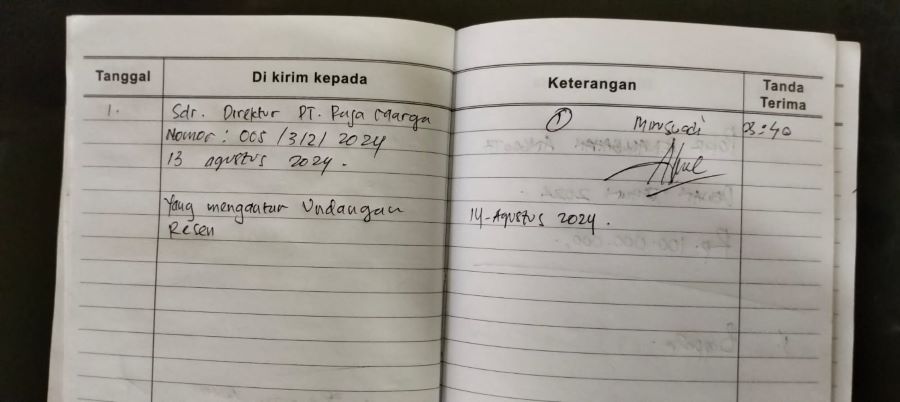 Tanggal
Di kirim kepada
Keterangan
Tanda Terima
1.
Sdr. Direktur PT. Raja Marga
Nomor : 005 /312/ 2024
13 agustus 2024.
Yang mengantar Undangan
Resen
①
14-Agustus 2024.